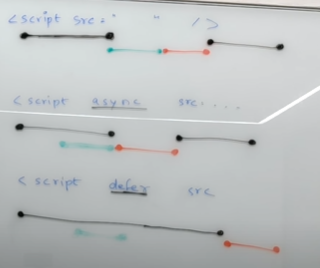 <script src="        "    />
<script async src....
<script defer src